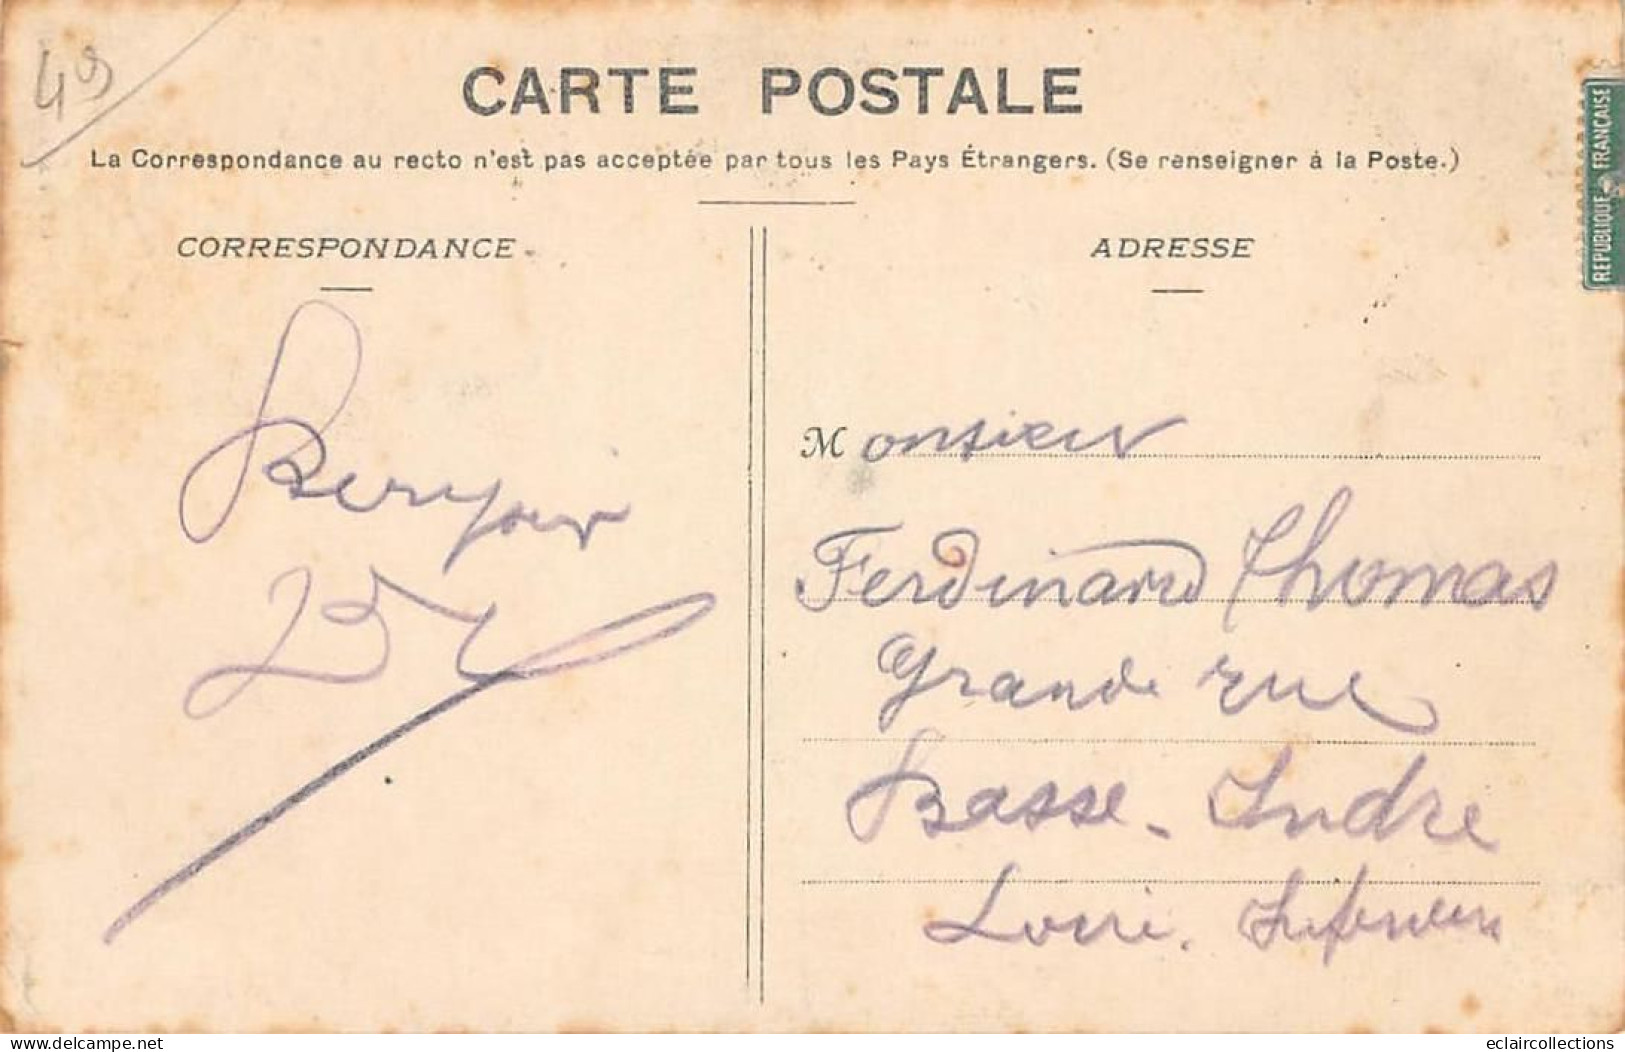 49
CARTE POSTALE
La Correspondance au recto n'est pas acceptée par tous les Pays Étrangers. (Se renseigner à la Poste.)
REPUBLIQUE FRANÇAISE
CORRESPONDANCE
Bonjour
ADRESSE
Monsieur
Ferdinand Thomas
Grande rue
Basse-Indre
Loire. Inférieure
delcampe.net
eclaircollections